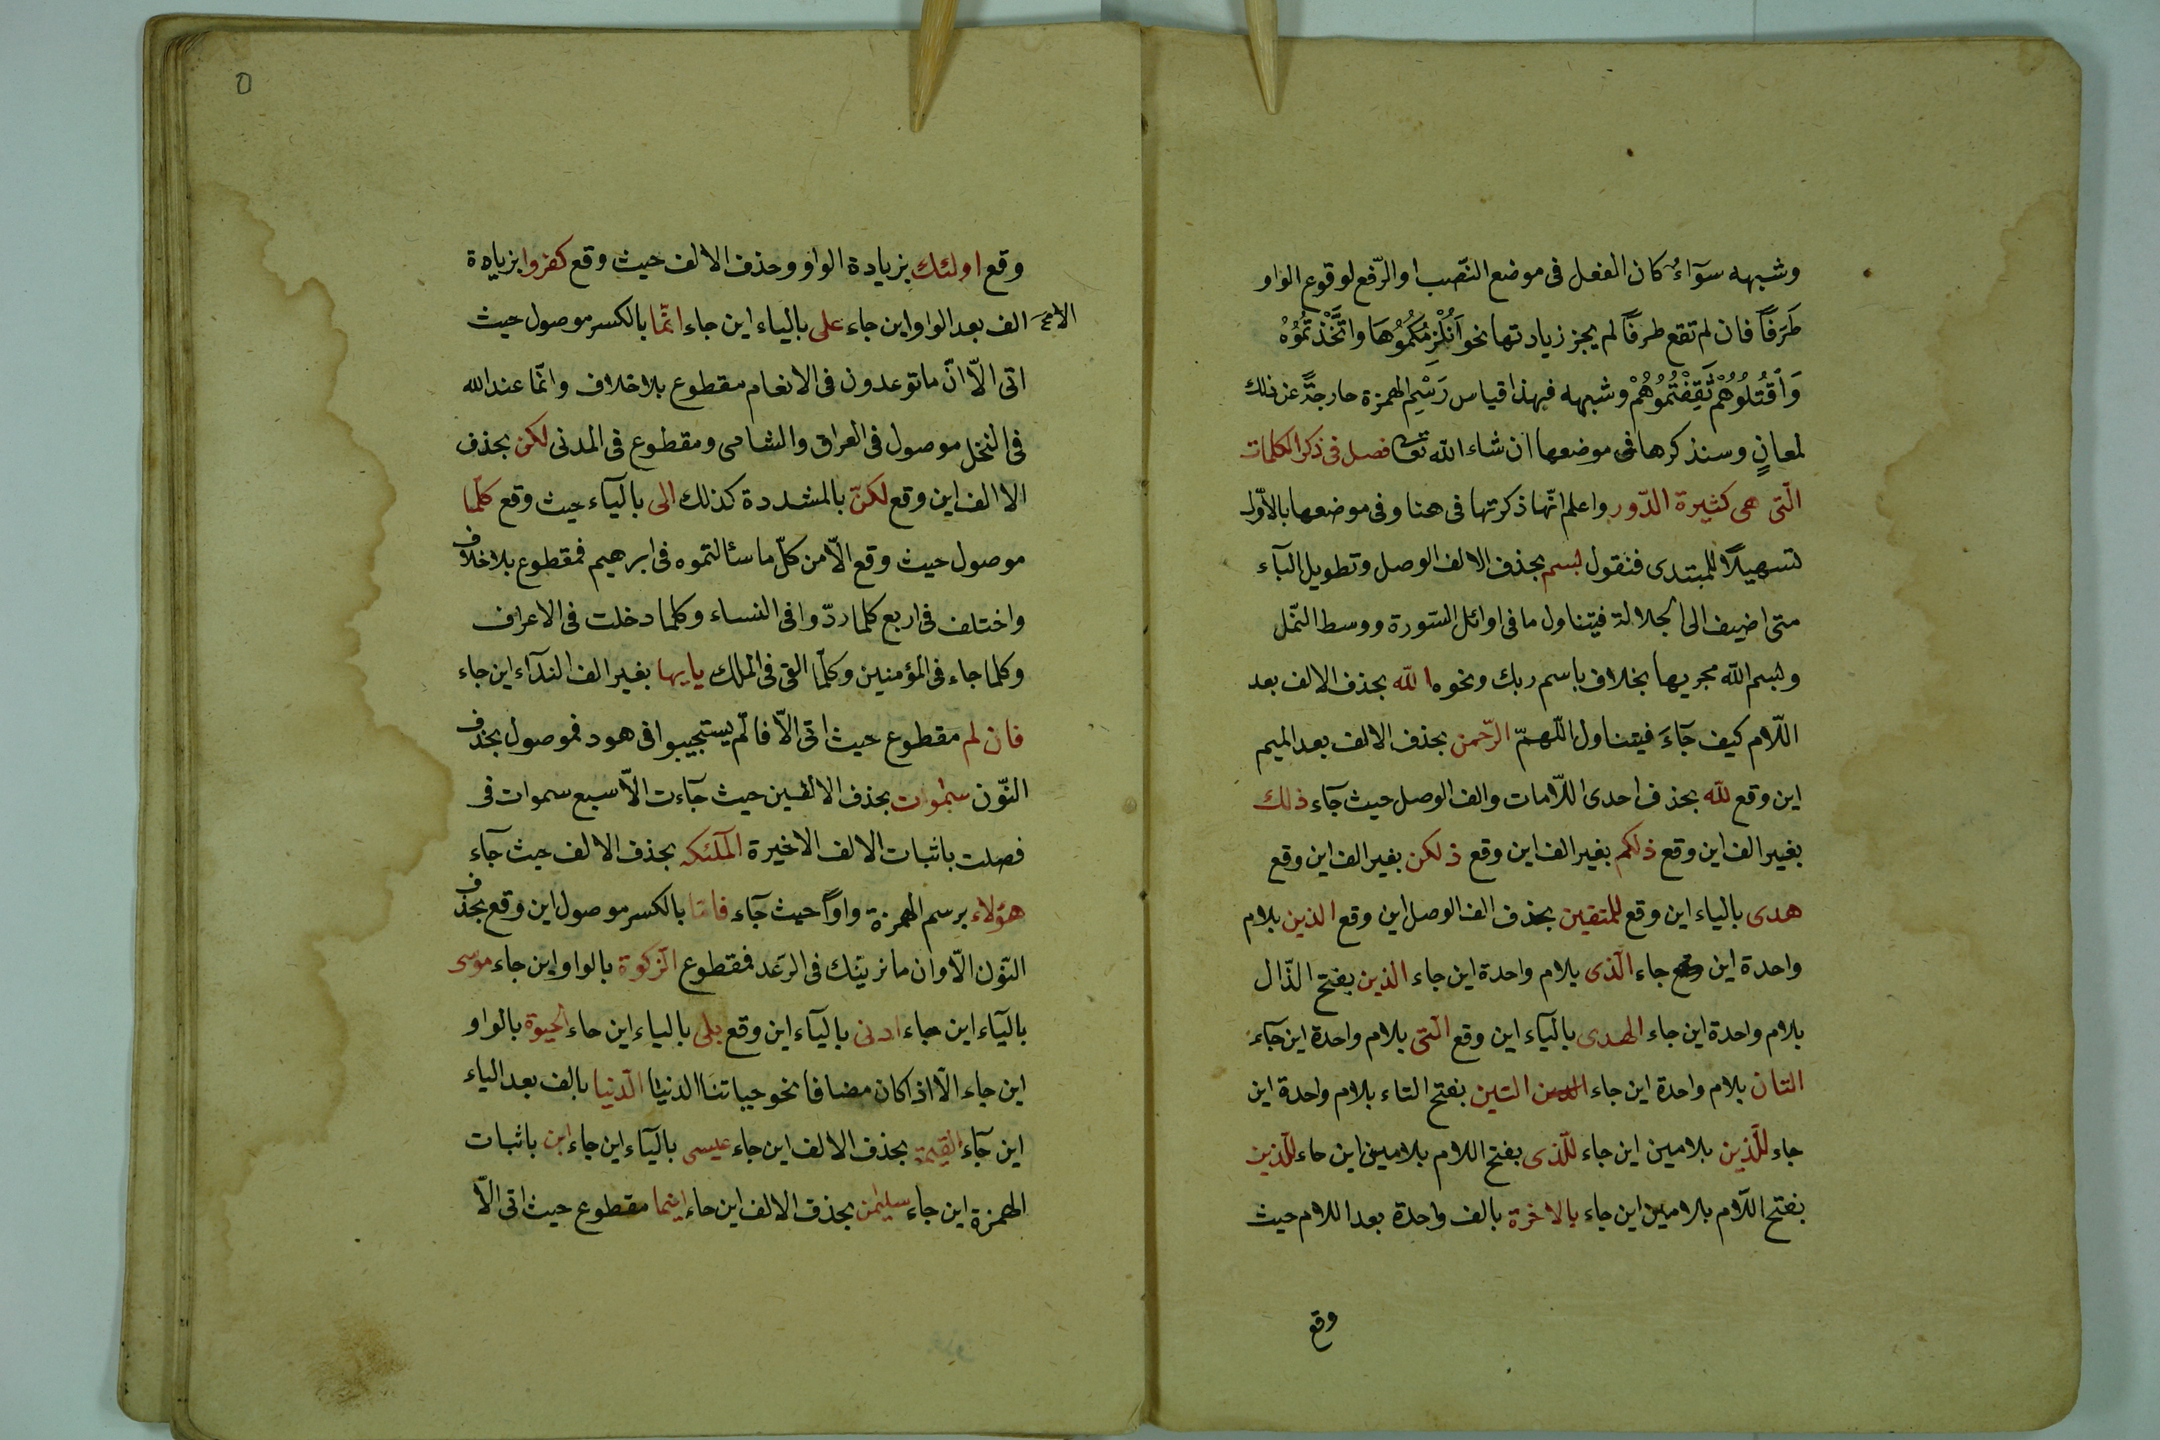 وشبهه سوآءٌ كان الفعل فى موضع النّصب او الرّفع لوقوع الواو
طَرَفًا فان لم تقع طرفًا لم يجز زيادتها نحو اَنُلْزِمُكُمُوُهَا واتَّخَذْتُمُوُهُ
وَاقْتُلُوُهُمْ ثَقِفْتُمُوُهُمْ وشبهه فهذا قياس رَسْمِ الهمزة خارجةً عن ذلك
لمعانٍ وسنذكرها فى موضعها ان شاء الله تعا فصل فى ذكر الكلمات
الّتى هى كثيرة الدّور واعلم انّها ذكرتها فى هنا وفى موضعها بالاوّل
تسهيلًا للمبتدى فنقول بسم بحذف الالف الوصل وتطويل الباء
متى اضيف الى الجلالة فيتناول ما فى اوائل السّورة ووسط النّمل
وبسم الله مجريها بخلاف باسم ربك ونحوه الله بحذف الالف بعد
اللّام كيف جآءَ فيتناول اللّهمّ الرّحمن بحذف الالف بعد الميم
اين وقع لله بحذف احدى اللّامات والف الوصل حيث جآء ذلك
بغير الف اين وقع ذلكم بغير الف اين وقع ذلكن بغير الف اين وقع
هدى بالياء اين وقع للمتقين بحذف الف الوصل اين وقع الذين بلام
واحدة اين جاء الّذى بلام واحدة اين جاء الذين بفتح الذّال
بلام واحدة اين جاء الهدى باليآء اين وقع الّتى بلام واحدة اين جآء
التان بلام واحدة اين جاء التين بفتح التاء بلام واحدة اين
جاء للّذين بلامين اين جاء للّذى بفتح اللام بلامين اين جاء للّذين
بفتح اللّام بلامين اين جاء بالاخرة بالف واحدة بعد اللام حيث
وقع
وقع اولئك بزيادة الواو وحذف الالف حيث وقع كفروا بزيادة
الف بعد الواو اين جاء على بالياء اين جاء انّما بالكسر موصول حيث
اتى الّا انّ ما توعدون فى الانعام مقطوع بلا خلاف وانّما عند الله
فى النحل موصول فى العراق والشامى ومقطوع فى المدنى لكن بحذف
الا الف اين وقع لكنّ بالمشددة كذلك الى باليآء حيث وقع كلّما
موصول حيث وقع الّا من كلّ ما سئالتموه فى ابرهيم فمقطوع بلا خلاف
واختلف فى اربع كلما ردّوا فى النساء وكلما دخلت فى الاعراف
وكلما جاء فى المؤمنين وكلّما القى فى الملك يايها بغير الف الندآء اين جاء
فان لم مقطوع حيث اتى الّا فالّم يستجيبوا فى هود فموصول بحذف
النّون سموات بحذف الالفين حيث جآءت الّا سبع سموات فى
فصلت باثبات الالف الاخيرة الملئكه بحذف الالف حيث جآء
هؤلاء برسم الهمزة واوًا حيث جآء فامّا بالكسر موصول اين وقع بحذف
النّون الّا وان ما نرينّك فى الرّعد فمقطوع الزكوة بالواو اين جاء موسى
باليآء اين جاء ادنى باليآء اين وقع بلى بالياء اين جاء الحيوة بالواو
اين جاء الّا اذا كان مضافا نحو حياتنا الدنيا الدّنيا بالف بعد الياء
اين جآء القيمة بحذف الالف اين جاء عيسى باليآء اين جاء ابن باثبات
الهمزة اين جاء سليمن بحذف الالف اين جاء اينما مقطوع حيث اتى الّا